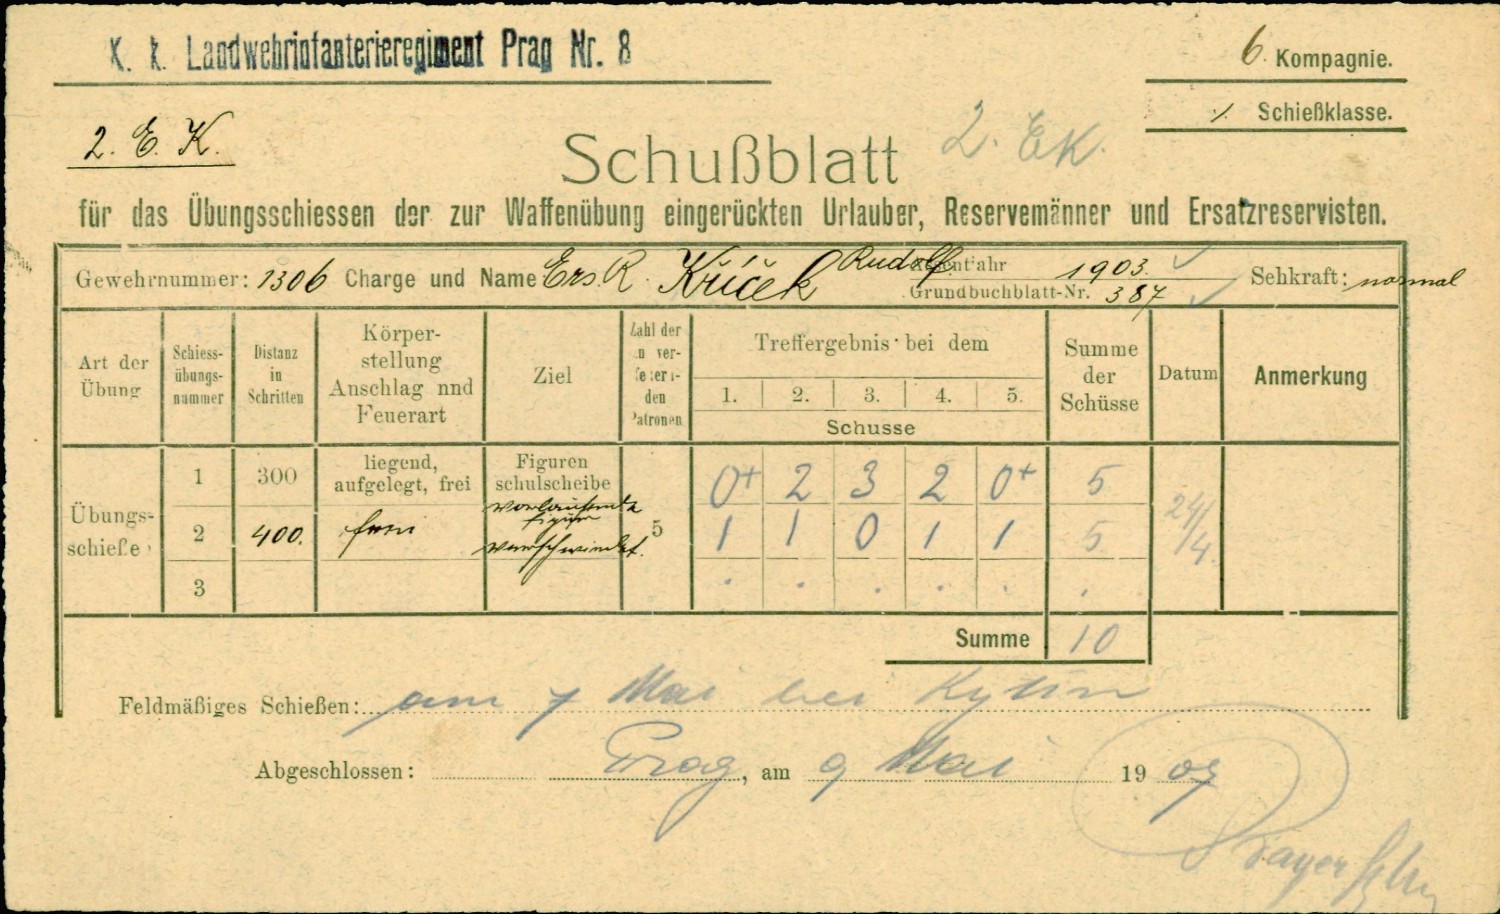 K. k. Landwehrinfanterieregiment Prag Nr. 8
6. Kompagnie.
1. Schießklasse.
2. E. K.
Schußblatt
2. EK.
für das Übungsschiessen der zur Waffenübung eingerückten Urlauber, Reservemänner und Ersatzreservisten.
Gewehrnummer: 1306 Charge und Name Ers. R. Křiček Rudolf
1903.
Grundbuchblatt-Nr. 387
Sehkraft: normal
Art der Übung
Schiess-übungs-nummer
Distanz in Schritten
Körper-stellung Anschlag nnd Feuerart
Ziel
Zahl der
n ver-
den
Patronen
Treffergebnis bei dem
1. 2. 3. 4. 5.
Schusse
Summe der Schüsse
Datum
Anmerkung
Übungs-schieße
1 300 liegend, aufgelegt, frei Figuren schulscheibe 0+ 2 3 2 0+ 5
2 400. frei 5 1 1 0 1 1 5 24/4
3 . . . . . .
Summe 10
Feldmäßiges Schießen: am 7 Mai bei Kytin
Abgeschlossen: Prag, am 9 Mai 1907